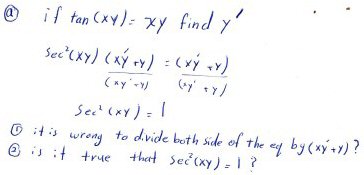 ⓐ if tan(xy) = xy find y'
sec²(xy) (xy'+y) = (xy'+y)
(xy'+y) (xy'+y)
sec²(xy) = 1
① it is wrong to divide both side of the eq by (xy'+y)?
② is it true that sec²(xy) = 1 ?